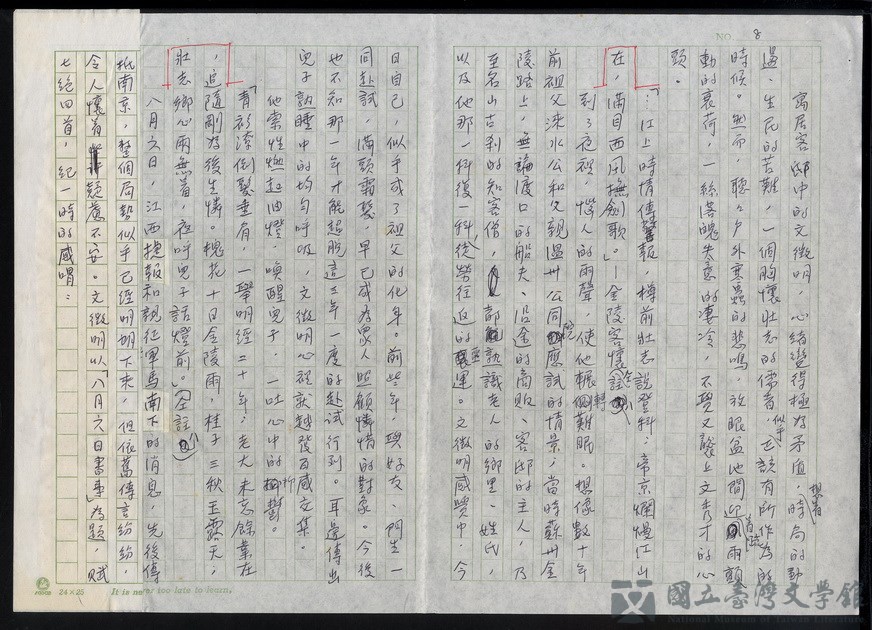 NO. 8
寓居客邸中的文徵明，心緒變得極為矛盾，想著時局的動
盪、生民的苦難，一個胸懷壯志的儒者，似乎正該有所作為的
時候。然而，聽々戶外寒蟲的悲鳴，放眼盆地間迎著風雨顫
動的衰荷，一絲落魄失意的凄冷，不覺又襲上文秀才的心
頭。
「…江上時情傳警報，樽前壯志說登科；帝京爛熳江山
在，滿目西風撫劍歌。」—金陵客懷
到了夜裡，惱人的雨聲，使他輾轉難眠。想像數十年
前祖父淶水公和父親溫州公同應試的情景，當時蘇州金
陵路上，無論渡口的船夫、沿途的商販、客邸的主人，乃
至名山古剎的知客僧，都熟識老人的鄉里、姓氏，
以及他那一科復一科徒勞往返的霉運。文徵明感覺中，今
日自己，似乎成了祖父的化身。前些年，與好友、門生一
同赴試，滿頭霜髮，早已成為眾人照顧憐惜的對象。今後
也不知那一年才能超脫這三年一度的赴試行列。耳邊傳出
兒子熟睡中的均勻呼吸，文徵明心裡就越發百感交集。
他索性燃起油燈，喚醒兒子，一吐心中的抑鬱。
「青衫潦倒鬢垂肩，一舉明經二十年；老大未忘餘業在
，追隨剛為後生憐。槐花十日金陵雨，桂子三秋玉露天，
壯志鄉心兩無着，夜呼兒子話燈前。」
八月六日，江西捷報和親征軍馬南下的消息，先後傳
抵南京，整個局勢似乎已經明朗下來，但依舊傳言紛紛，
令人懷着疑慮不安。文徵明以「八月六日書事」為題，賦
七絕四首，紀一時的感喟：
24×25 It is never too late to learn.
國立臺灣文學館
National Museum of Taiwan Literature